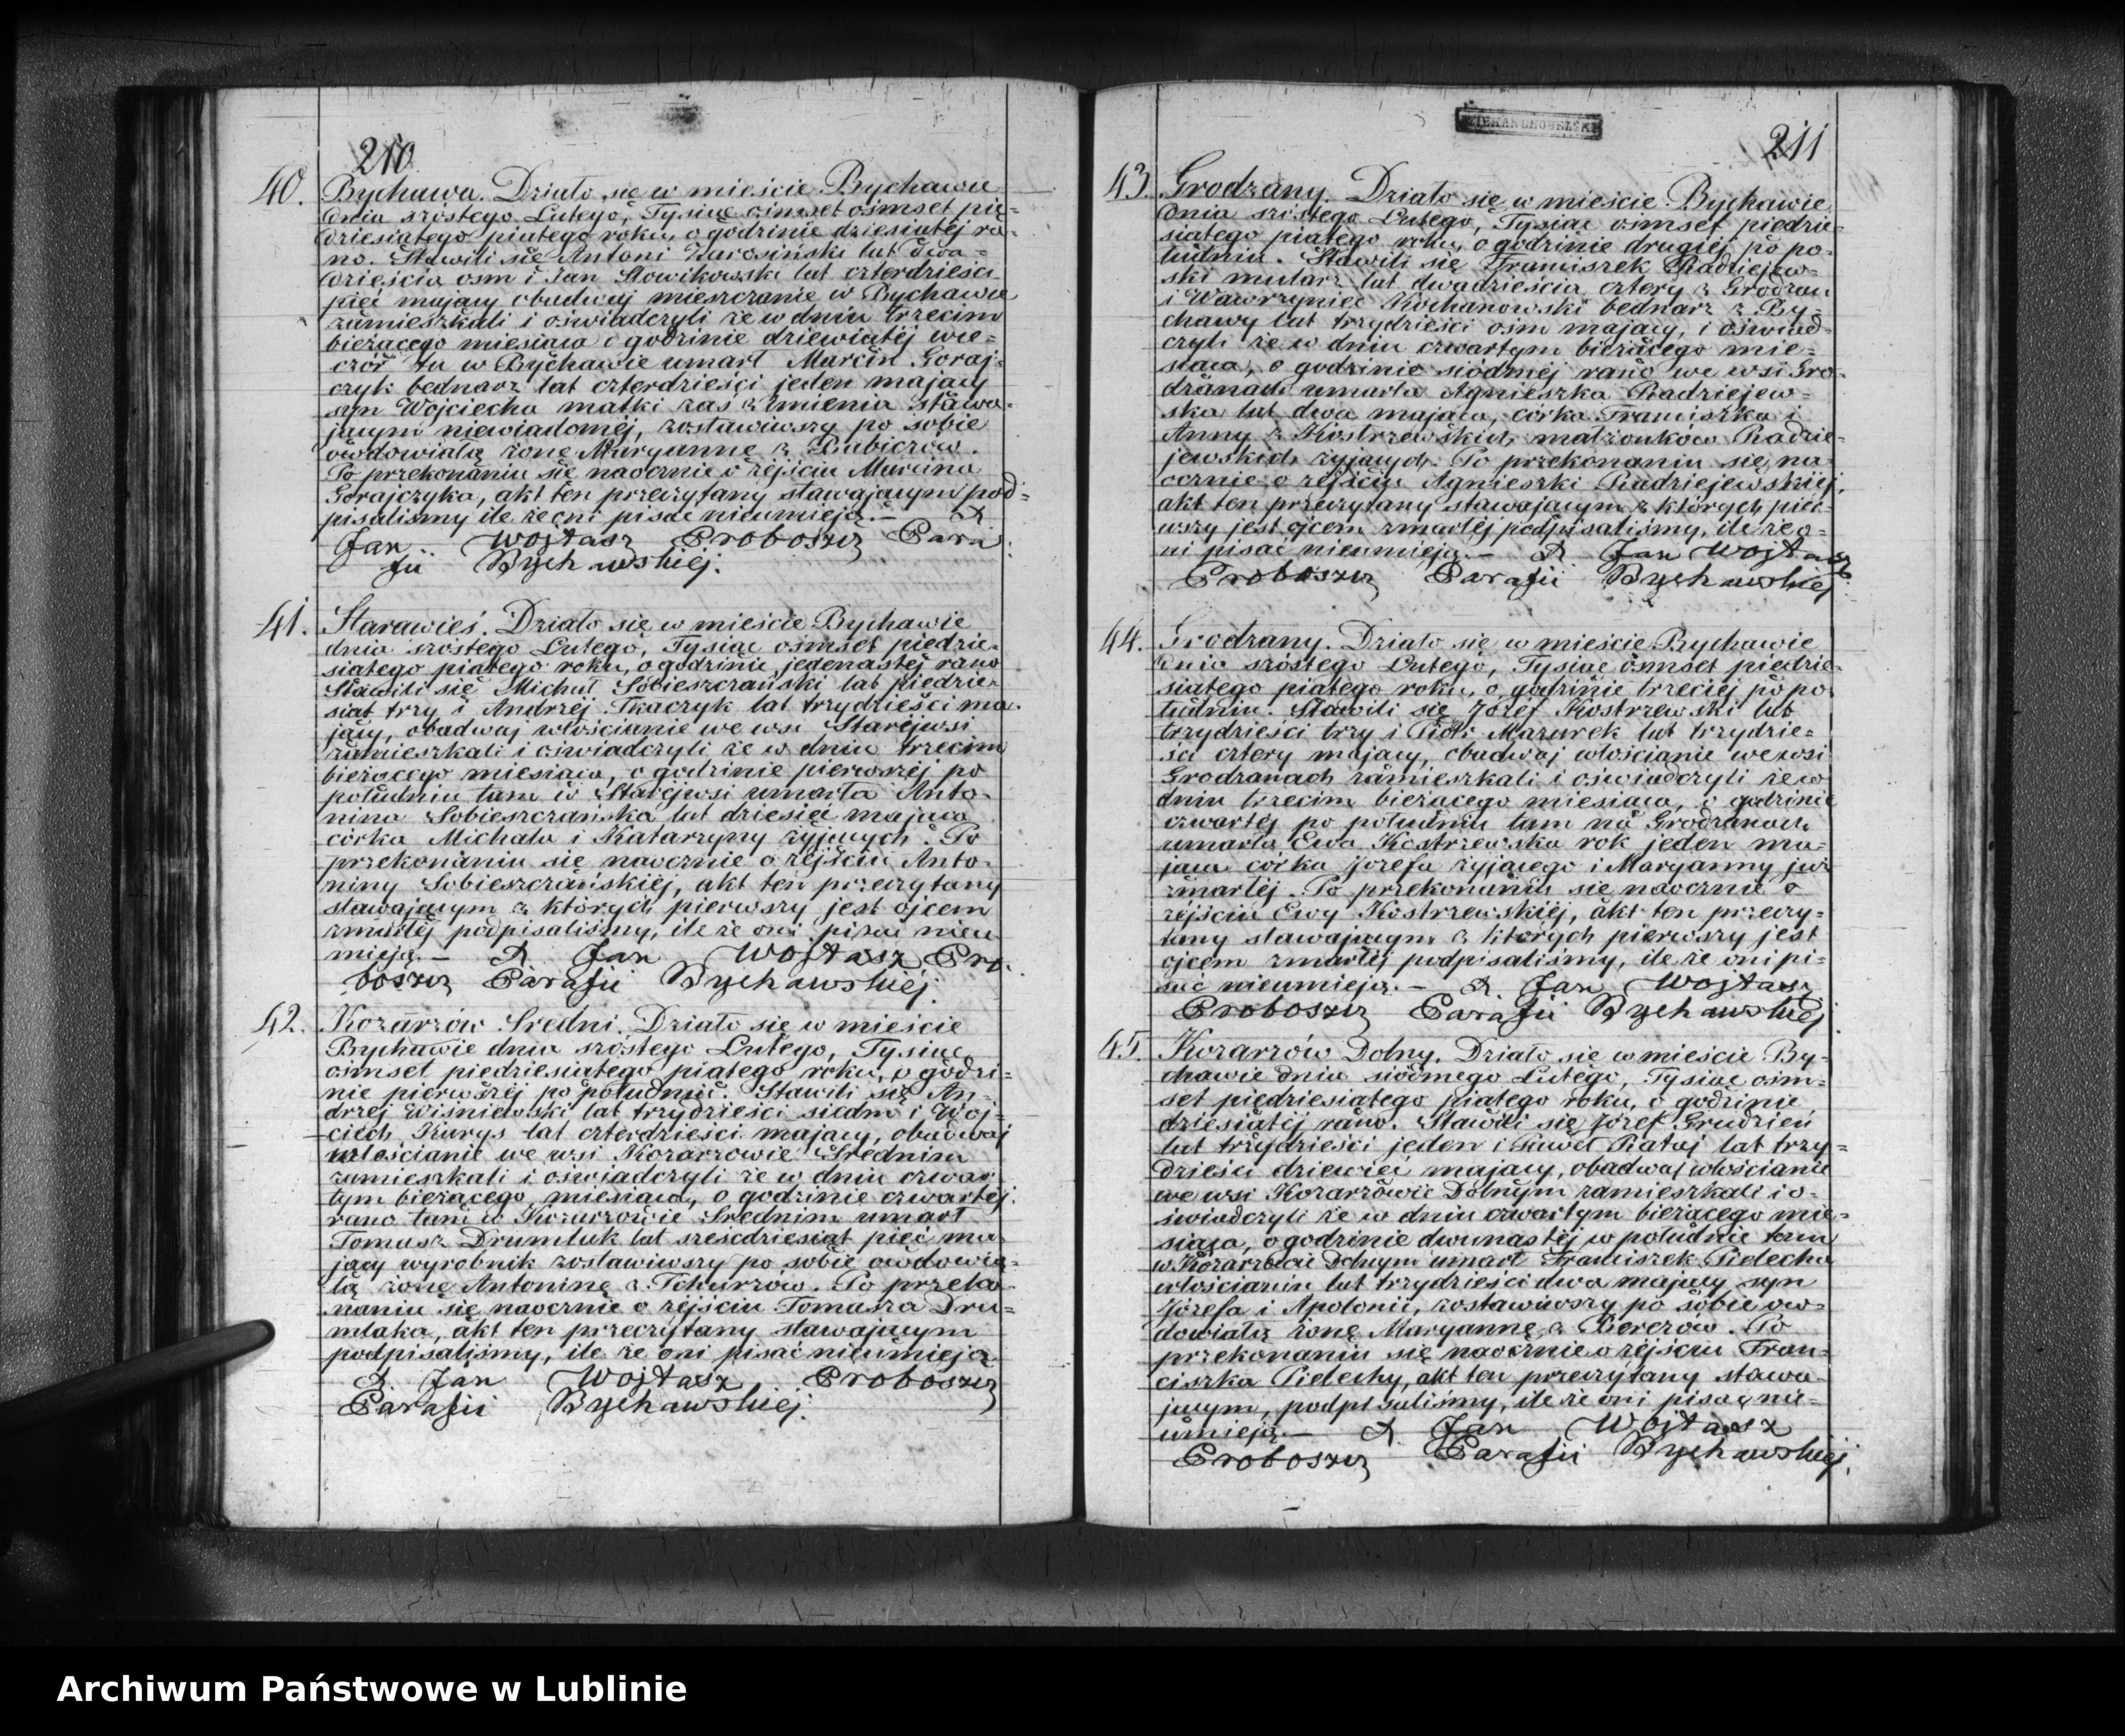 210
40. Bychawa. Działo się w mieście Bychawie
dnia szóstego Lutego, Tysiąc ośmset ośmset pię=
dziesiątego piątego roku, o godzinie dziesiątéj ra=
no. Stawili się Antoni lat dwa=
dzieścia ośm i Jan Słowikowski lat czterdzieści
pięć mający obudwaj mieszczanie w Bychawie
zamieszkali i oświadczyli że w dniu trzecim
bieżącego miesiąca o godzinie dziewiątéj wie=
czór tu w Bychawie umarł Marcin Goraj=
czyk bednarz lat czterdzieści jeden mający
syn Wojciecha matki zaś z imienia stawa=
jącym niewiadoméj, zostawiwszy po sobie
owdowiałą żonę Maryannę z Bubiczów.
Po przekonaniu się naocznie o zejściu Marcina
Gorajczyka, akt ten przeczytany stawającym pod=
pisaliśmy ile że oni pisać nieumieją. — X
Jan Wojtasz Proboszcz Para
fii Bychawskiéj.
41. Starawieś. Działo się w mieście Bychawie
dnia szóstego Lutego, Tysiąc ośmset piędzie=
siątego piątego roku, o godzinie jedenastéj rano
Stawili się Michał Sobieszczański lat piędzie=
siąt trzy i Andrzéj Tkaczyk lat trzydzieści ma=
jący, obadwaj włościanie we wsi Staréjwsi
zamieszkali i oświadczyli że w dniu trzecim
bieżącego miesiąca, o godzinie pierwszéj po
południu tam w Staréjwsi umarła Anto=
nina Sobieszczańska lat dziesięć mająca
córka Michała i Katarzyny żyjących. Po
przekonaniu się naocznie o zejściu Anto=
niny Sobieszczańskiéj, akt ten przeczytany
stawającym z których pierwszy jest ojcem
zmarłéj podpisaliśmy, ile że oni pisać nieu
mieją. — X Jan Wojtasz Pro=
boszcz Parafii Bychawskiéj.
42. Kozarzów Sredni. Działo się w mieście
Bychawie dnia szóstego Lutego, Tysiąc
ośmset piędziesiątego piątego roku, o godzi=
nie pierwszéj po południu. Stawili się An=
drzéj Wiśniewski lat trzydzieści siedm i Woj=
ciech Kurys lat czterdzieści mający, obudwaj
włościanie we wsi Kozarzowie Srednim
zamieszkali i oświadczyli że w dniu czwar
tym bieżącego miesiąca, o godzinie czwartéj
rano tam w Kozarzowie Srednim umarł
Tomasz Drumlak lat sześćdziesiąt pięć ma
jący wyrobnik zostawiwszy po sobie owdowia=
łą żonę Antoninę z . Po przeko=
naniu się naocznie o zejściu Tomasza Dru=
mlaka, akt ten przeczytany stawającym
podpisaliśmy, ile że oni pisać nieumieją
X. Jan Wojtasz Proboszcz
Parafii Bychawskiéj.
211
43. Grodzany. Działo się w mieście Bychawie
dnia szóstego Lutego, Tysiąc ośmset piędzie=
siątego piątego roku, o godzinie drugiéj po po=
łudniu. Stawili się Franciszek Radziejew=
ski mularz lat dwadzieścia cztery z Grodzan
i Wawrzyniec Kochanowski bednarz z By=
chawy lat trzydzieści ośm mający, i oświad=
czyli że w dniu czwartym bieżącego mie=
siąca, o godzinie siódméj rano we wsi Gro=
dzanach umarła Agnieszka Radziejew=
ska lat dwa mająca, córka Franciszka i
Anny z Kostrzewskich małżonków Radzie=
jewskich żyjących. Po przekonaniu się na=
ocznie o zejściu Agnieszki Radziejewskiéj,
akt ten przeczytany stawającym z których pier=
wszy jest ojcem zmarłéj podpisaliśmy, ile że o=
ni pisać nieumieją. — X Jan Wojtasz
Proboszcz Parafii Bychawskiéj
44. Grodzany. Działo się w mieście Bychawie
dnia szóstego Lutego, Tysiąc ośmset piędzie=
siątego piątego roku, o godzinie trzeciéj po po=
łudniu. Stawili się Józef Kostrzewski lat
trzydzieści trzy i Piotr Mazurek lat trzydzie=
ści cztery mający, obadwaj włościanie we wsi
Grodzanach zamieszkali i oświadczyli że w
dniu trzecim bieżącego miesiąca, o godzinie
czwartéj po południu tam na Grodzanach
umarła Ewa Kostrzewska rok jeden ma=
jąca córka Józefa żyjącego i Maryanny już
zmarłéj. Po przekonaniu się naocznie o
zejściu Ewy Kostrzewskiéj, akt ten przeczy=
tany stawającym z których pierwszy jest
ojcem zmarłéj podpisaliśmy, ile że oni pi=
sać nieumieją. — X. Jan Wojtasz
Proboszcz Parafii Bychawskiéj
45. Kozarzów Dolny. Działo się w mieście By=
chawie dnia siódmego Lutego, Tysiąc ośm=
set piędziesiątego piątego roku, o godzinie
dziesiątéj rano. Stawili się Józef Grudzień
lat trzydzieści jeden i Paweł Rataj lat trzy=
dzieści dziewięć mający, obadwaj włościanie
we wsi Kozarzowie Dolnym zamieszkali i o=
świadczyli że w dniu czwartym bieżącego mie=
siąca, o godzinie dwunastéj w południe tam
w Kozarzowie Dolnym umarł Franciszek Pielecha
włościanin lat trzydzieści dwa mający syn
Józefa i Apolonii, zostawiwszy po sobie ow=
dowiałą żonę Maryannę z . Po
przekonaniu się naocznie o zejściu Fran=
ciszka Pielechy, akt ten przeczytany stawa=
jącym, podpisaliśmy, ile że oni pisać nie=
umieją. — X Jan Wojtasz
Proboszcz Parafii Bychawskiéj.
Archiwum Państwowe w Lublinie